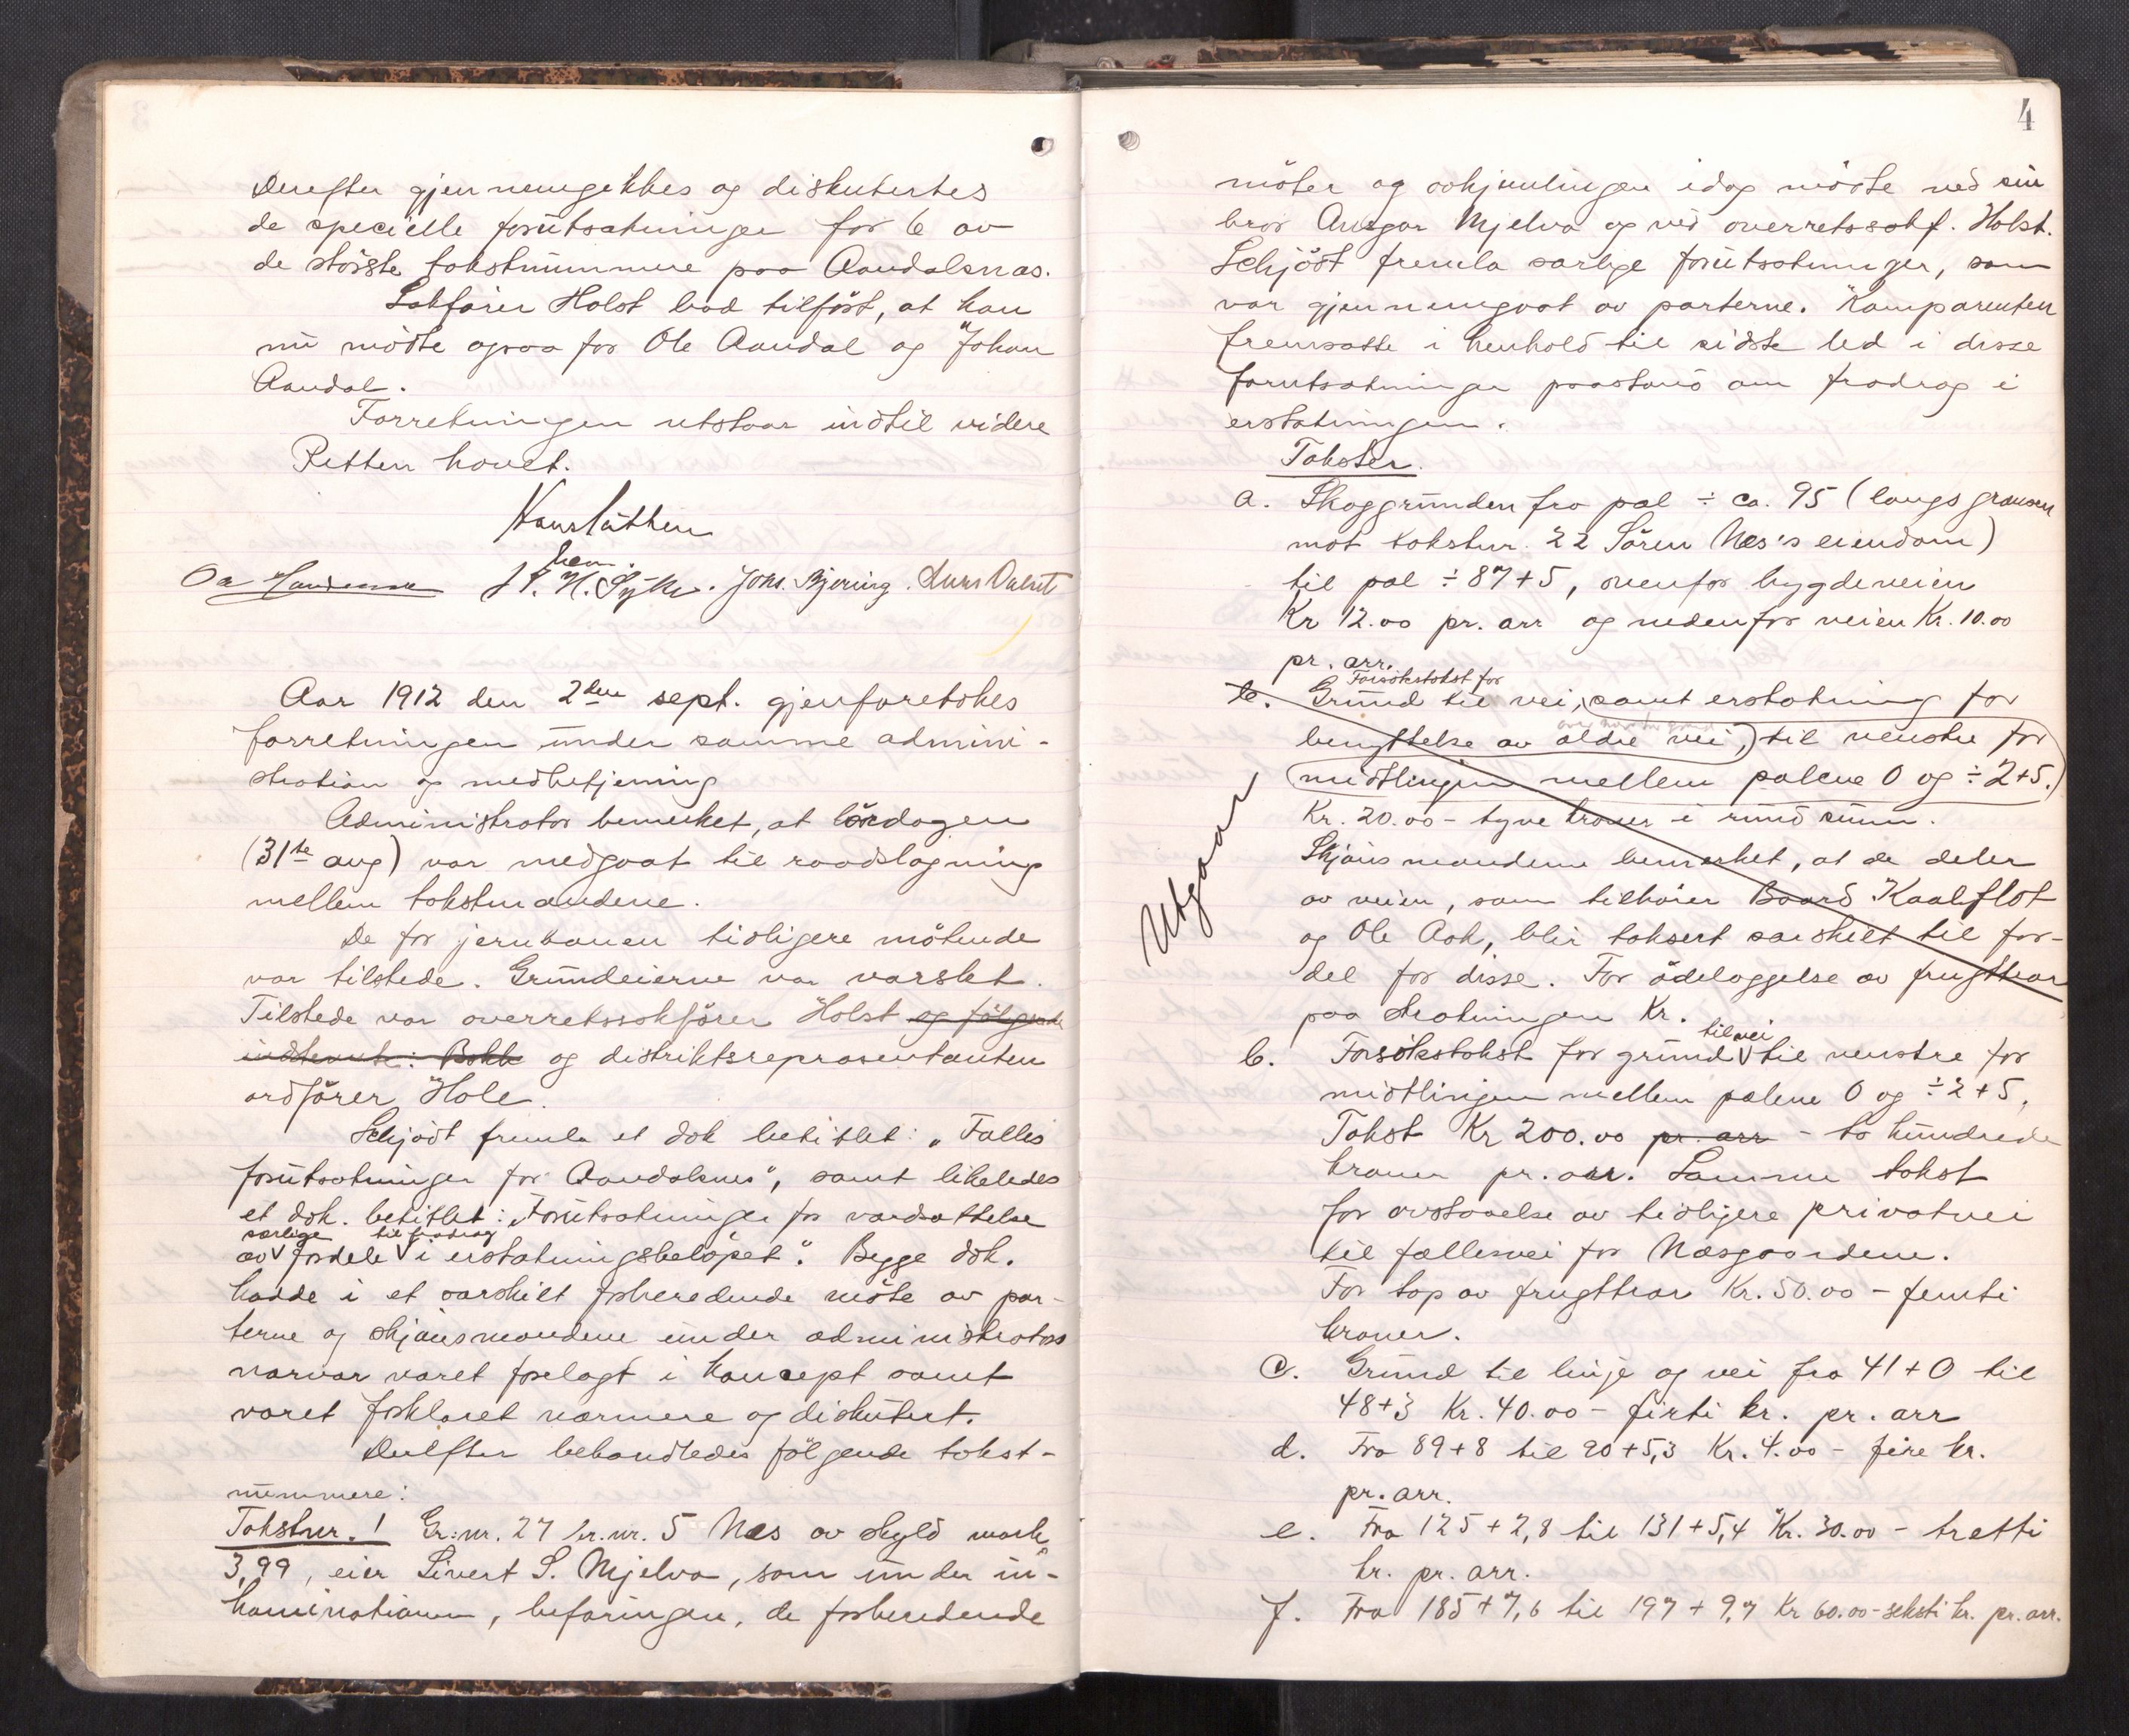 Derefter gjennemgikkes og diskutertes
de specielle forutsætninger for 6 av
de største takstnummere paa Aandalsnæs.
Sakfører Holst bad tilført, at han
nu møtte ogsaa for Ole Aandal og Johan
Aandal.
Forretningen utstaar indtil videre
Retten hævet.
hans
Joh. Bjering.
Aar 1912 den 2den sept. gjenforetokes
forretningen under samme admini-
stration og medbetjening
Administrator bemerket, at lørdagen
(31te aug) var medgaat til raadslagning
mellem takstmændene.
De for jernbanen tidligere møtende
var tilstede. Grundeierne var varslet.
Tilstede var overretssakfører Holst og følgende
og distriktsrepræsentanten
ordfører Hole.
Schjødt fremla et dok betitlet: „Fælles
forutsætninger for Aandalsnes", samt likeledes
et dok. betitlet: „Forutsætninger for værdsættelse
særlige til fradrag
av fordele i erstatningsbeløpet". Begge dok.
hadde i et særskilt forberedende møte av par-
terne og skjønsmændene under administrators
nærvær været forelagt i koncept samt
været forklaret nærmere og diskutert.
Derefter behandledes følgende takst-
nummere:
Takstnr. 1 Gr.nr. 27 br.nr. 5 Næs av skyld mark
3,99, eier Sivert S. Mjelva, som under in-
kaminationen, befaringen, de forberedende
4
møter og avhjemlingen idag møtte ved sin
bror Ansgar Mjelva og ved overretssakf. Holst.
Schjødt fremla særlige forutsætninger, som
var gjennemgaat av parterne. Komparenten
fremsatte i henhold til sidste led i disse
forutsætninger paastand om fradrag i
erstatningen.
Takster.
a. Skoggrunden fra pæl ÷ ca. 95 (langs grænsen
mot takstnr. 22 Søren Næs's eiendom)
til pæl ÷ 87+5, ovenfor bygdeveien
Kr 12.00 pr. arr og nedenfor veien Kr. 10.00
pr. arr.
Forsøkstakst for
b. Grund til vei, samt erstatning for
benyttelse av ældre vei,) til venstre for
midtlinjen mellem pælene 0 og ÷ 2+5.
Kr. 20.00 - tyve kroner i rund sum.
Skjønsmændene bemerket, at de deler
av veien, som tilhører Baard Kaalflot
og Ole Aak, blir taksert særskilt til for-
del for disse. For ødelæggelse av frugttrær
paa strækningen Kr.
Utgaar
til vei
b. Forsøkstakst for grund til venstre for
midtlinjen mellem pælene 0 og ÷ 2+5,
Takst Kr 200.00 pr. arr - to hundrede
kroner pr. arr. Samme takst
for avstaaelse av tidligere privatvei
til fællesvei for Næsgaardene.
For tap av frugttrær Kr. 50.00 - femti
kroner.
c. Grund til linje og vei fra 41+0 til
48+3 Kr. 40.00 - firti kr. pr. arr
d. Fra 89+8 til 90+5,3 Kr. 4.00 - fire kr.
pr. arr.
e. Fra 125+2,8 til 131+5,4 Kr. 30.00 - tretti
kr. pr. arr.
f. Fra 185+7,6 til 197+9,7 Kr 60.00 - seksti kr. pr. arr.